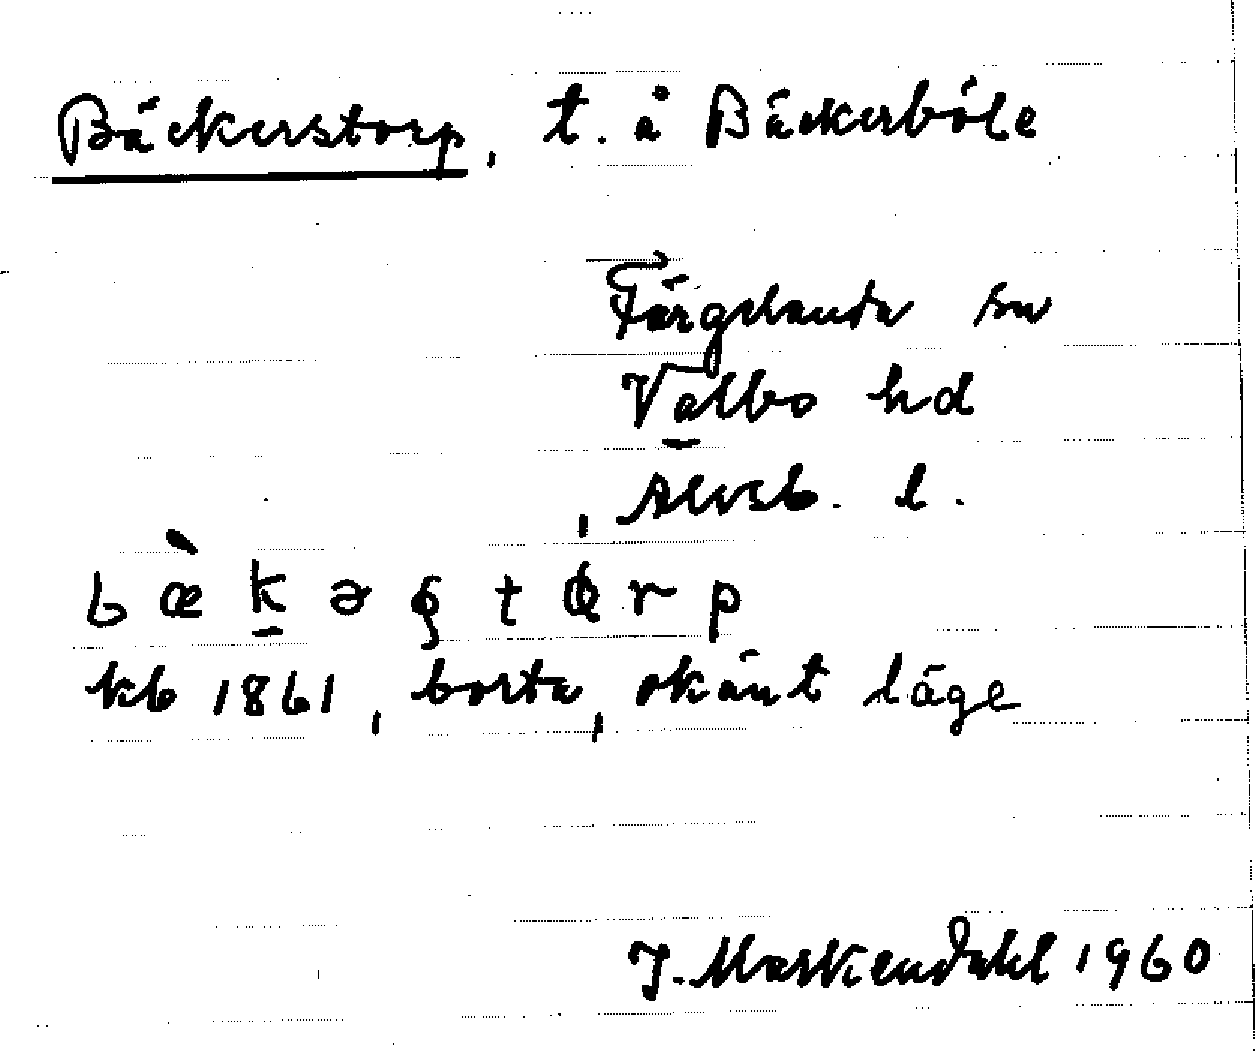 Bäckerstorp, t. å Bäckerböle
Färgelanda sn
Valbo hd
Älvsb. l.
kb 1861, borta, okänt läge
J. Markendahl 1960